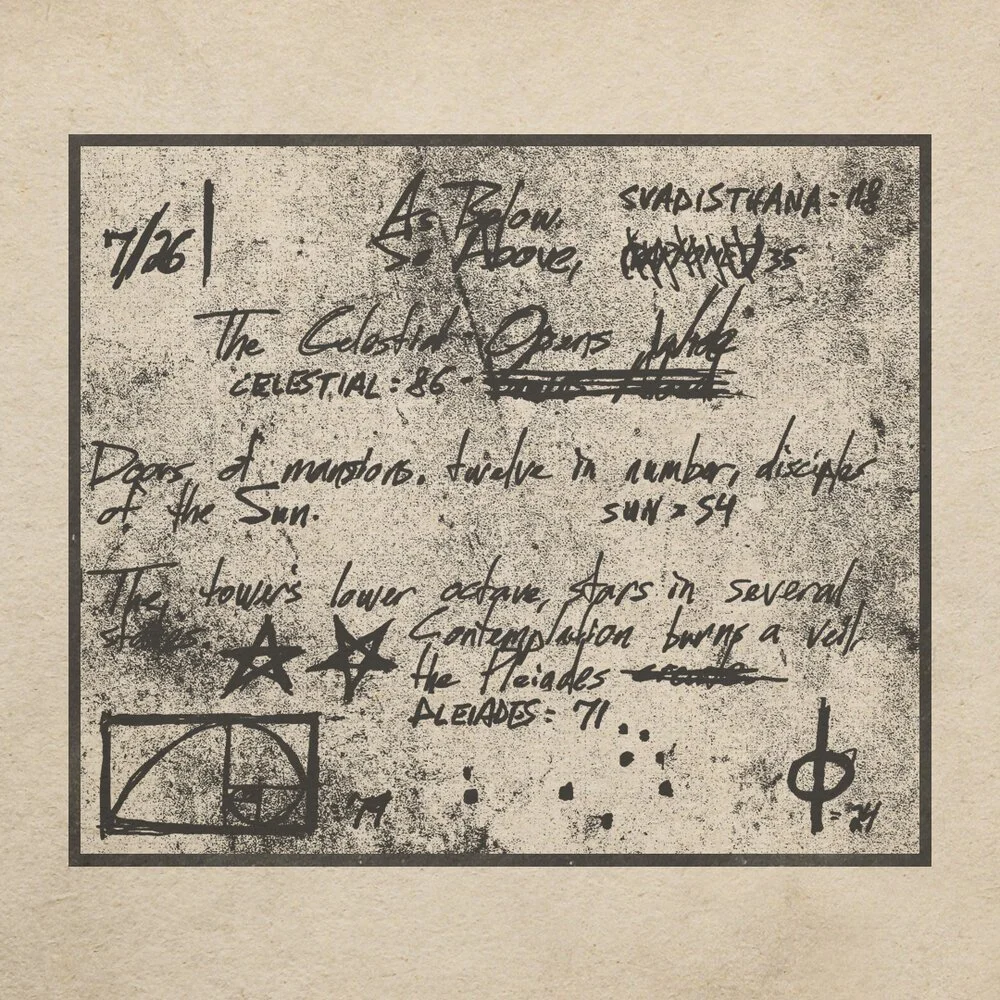 7/26
As Below.
So Above,
SVADISTHANA = 118
35
The Celestial Opens Wide
CELESTIAL = 86 -
Doors of mansions, twelve in number, disciples
of the Sun.
SUN = 54
The tower's lower octave, stars in several
states.
Contemplation burns a veil,
the Pleiades
PLEIADES = 71
= 24